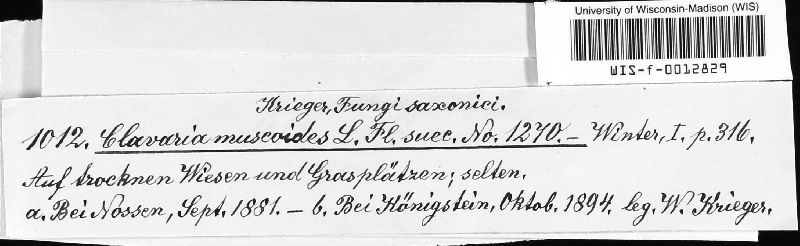 University of Wisconsin-Madison (WIS)
WIS-f-0012829
Krieger, Fungi saxonici.
1012. Clavaria muscoides L. Fl. succ. No. 1270. – Winter, I. p. 316.
Auf trocknen Wiesen und Grasplätzen; selten.
a. Bei Nossen, Sept. 1881. – b. Bei Königstein, Oktob. 1894. leg. W. Krieger.